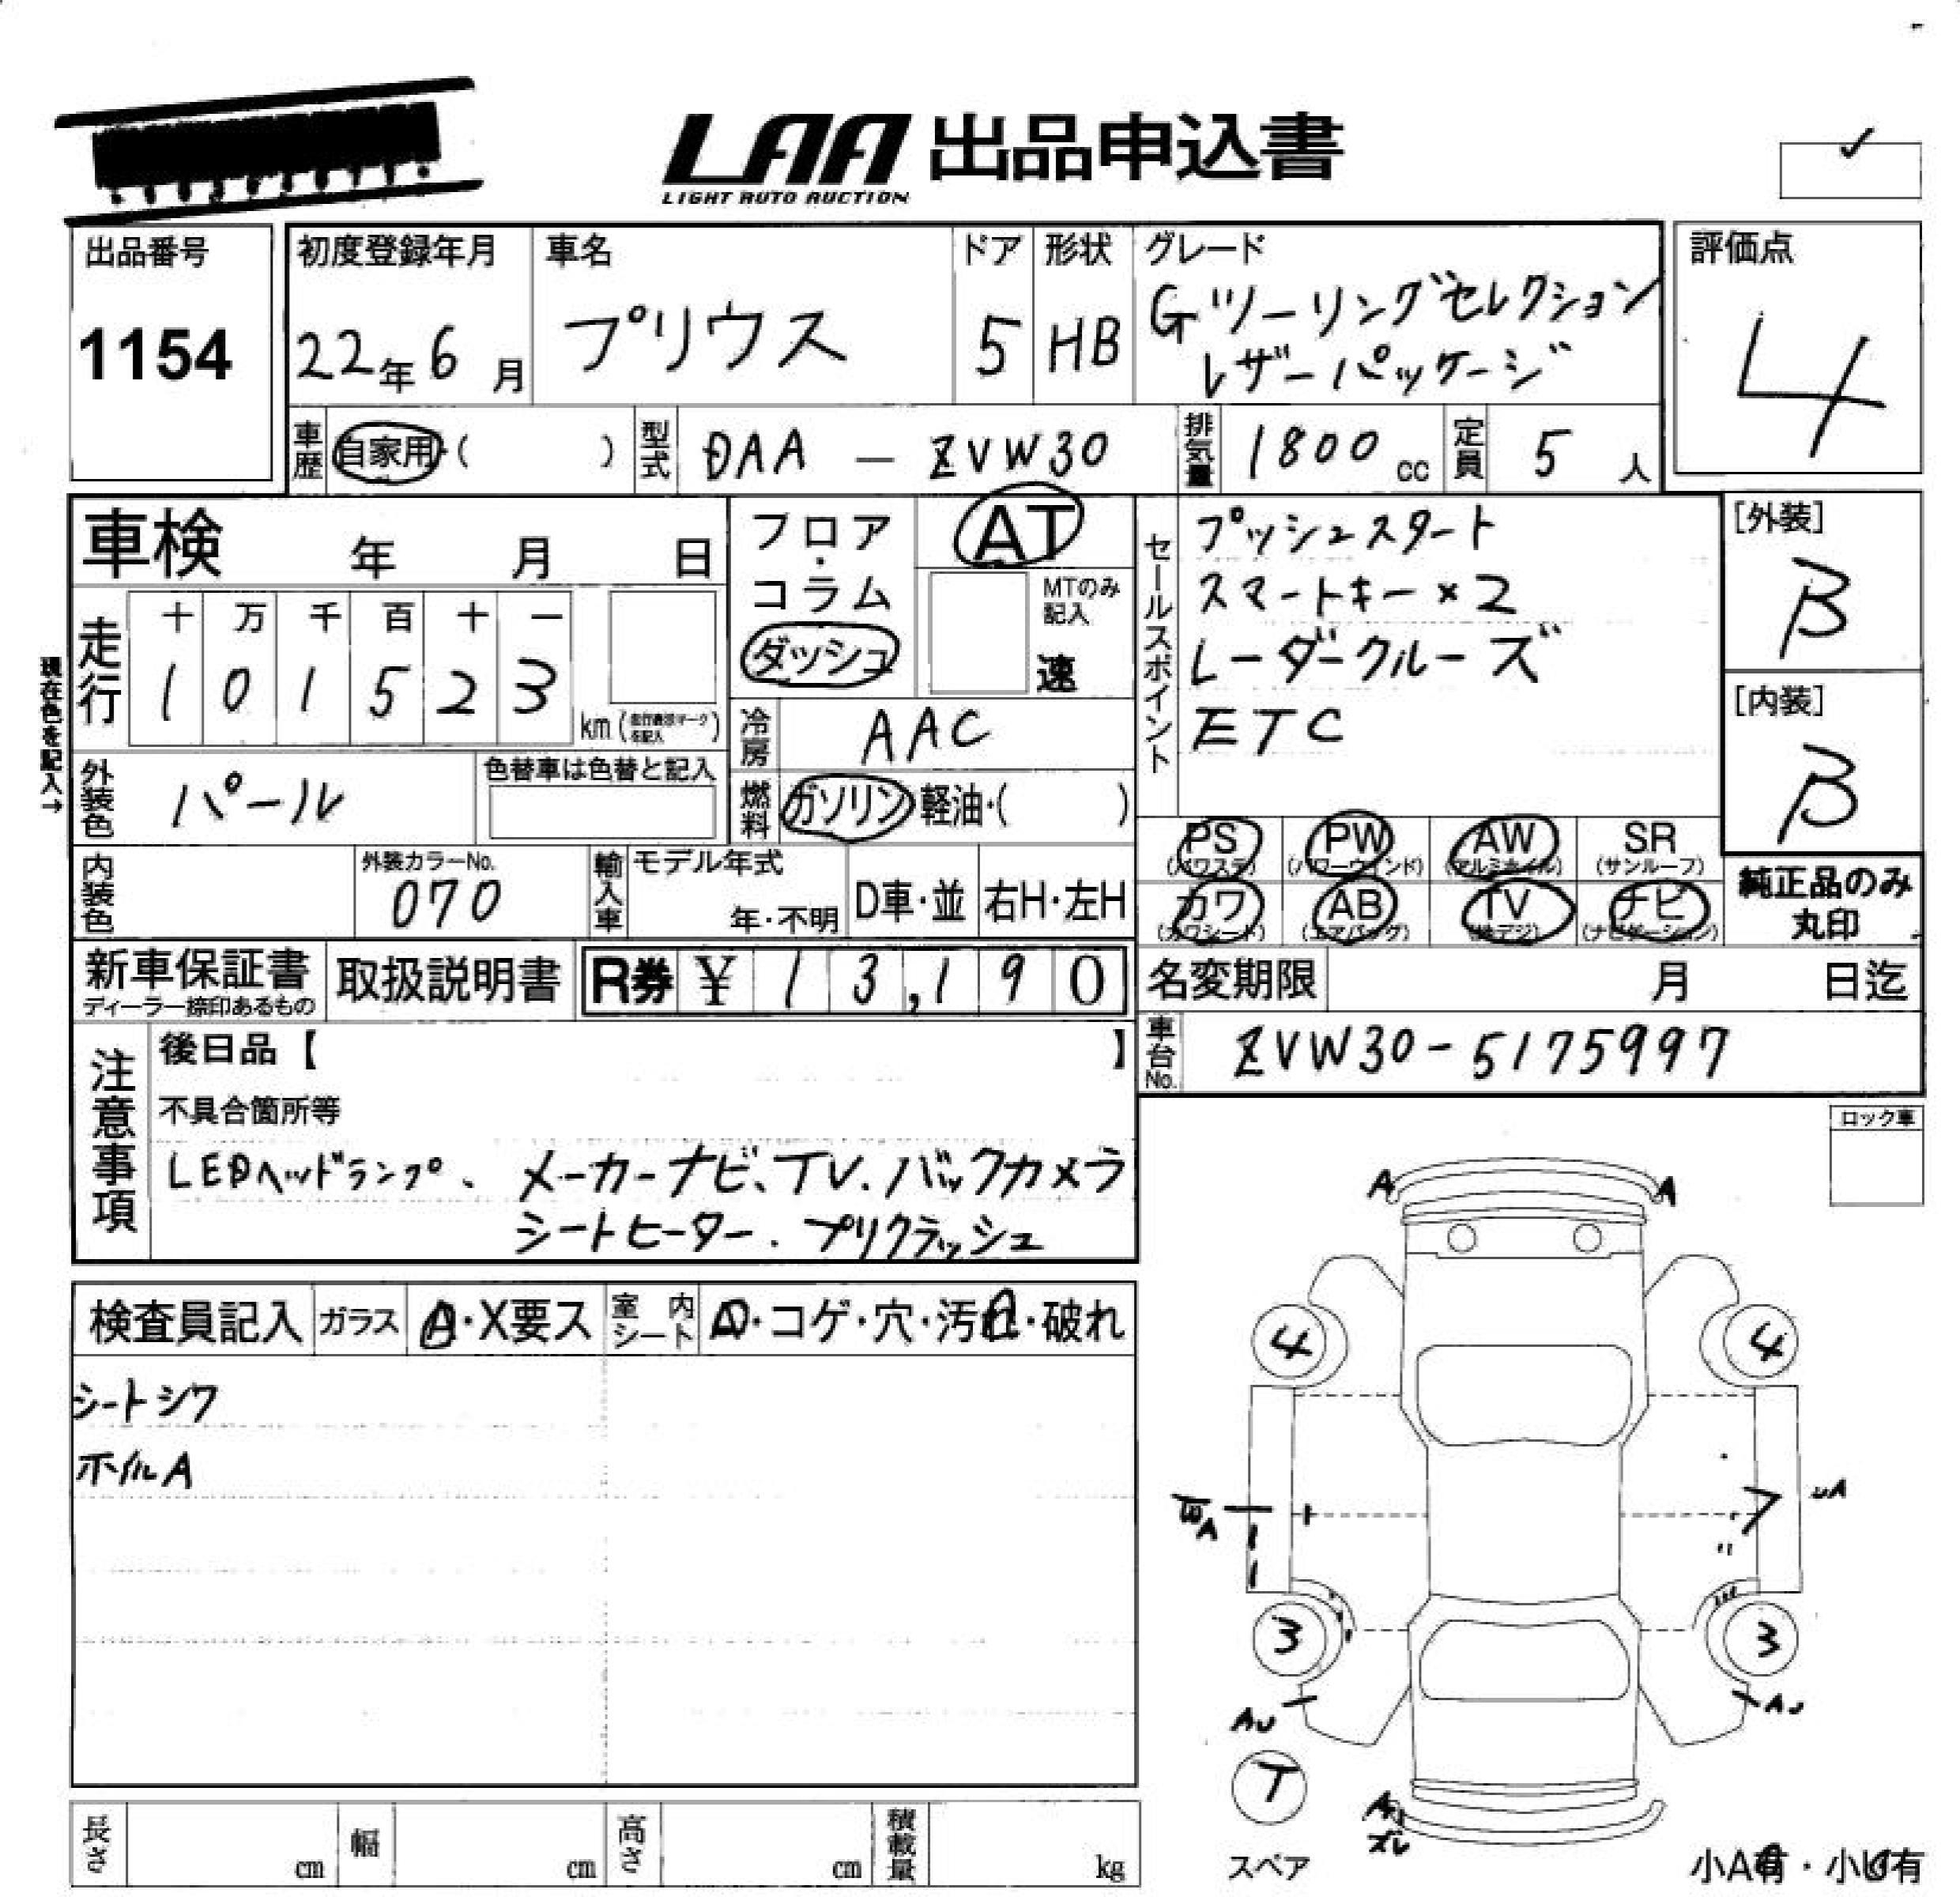 LAA 出品申込書
LIGHT AUTO AUCTION
出品番号
1154
初度登録年月
22年6月
車名
プリウス
ドア
5
形状
HB
グレード
Gツーリングセレクション
レザーパッケージ
評価点
4
車歴
自家用・( )
型式
DAA － ZVW30
排気量
1800 cc
定員
5人
車検 年 月 日
フロア・コラム
ダッシュ
AT
MTのみ記入
速
セールスポイント
プッシュスタート
スマートキー×2
レーダークルーズ
ETC
[外装]
B
[内装]
B
現在色を記入→
走行
十 万 千 百 十 一
1 0 1 5 2 3
km
冷房
AAC
外装色
パール
色替車は色替と記入
燃料
ガソリン 軽油・( )
PS
(パワステ)
PW
(パワーウィンド)
AW
(アルミホイル)
SR
(サンルーフ)
内装色
外装カラーNo.
070
輸入車
モデル年式
年・不明
D車・並
右H・左H
カワ
(カワシート)
AB
(エアバッグ)
TV
(地デジ)
ナビ
(ナビゲーション)
純正品のみ
丸印
新車保証書
ディーラー捺印あるもの
取扱説明書
R券 ¥ 13,190
名変期限 月 日迄
車台No.
ZVW30-5175997
注意事項
後日品【 】
不具合箇所等
LEDヘッドランプ、メーカーナビ、TV、バックカメラ
シートヒーター、プリクラッシュ
ロック車
A A
検査員記入
ガラス
A・X要ス
室内シート
・コゲ・穴・汚れ・破れ
シートシワ
ホイルA
4 4
A
UA
3 3
AU
AU
T
スペア
ズレ
長さ cm
幅 cm
高さ cm
積載量 kg
小A有・小U有